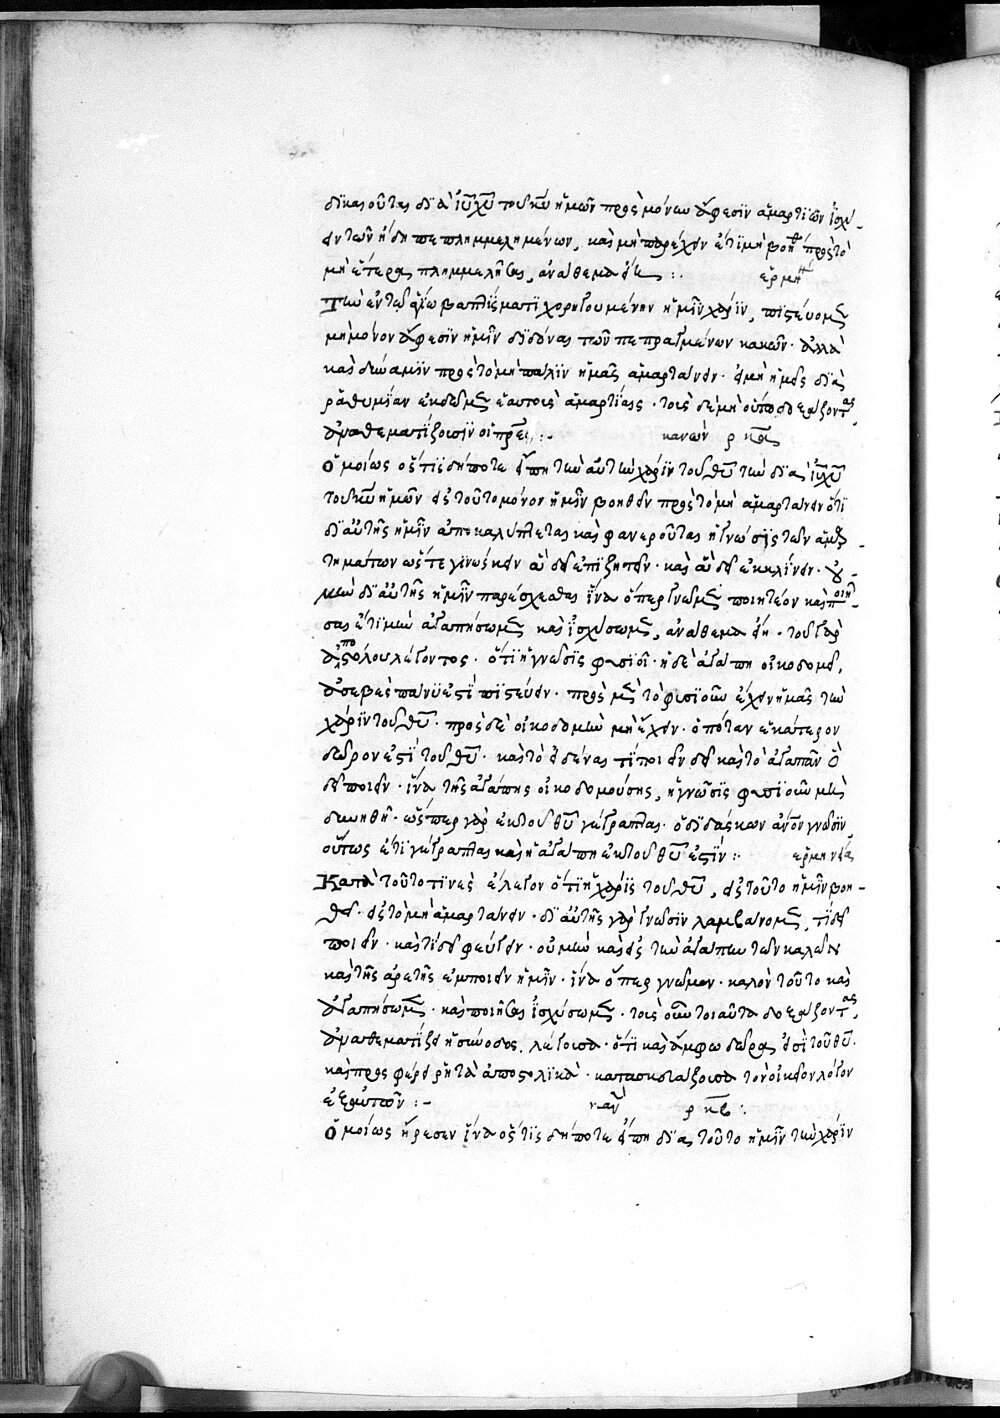 δίκαιοῦται διὰ ἰ̅υ̅ χ̅υ̅ τοῦ κ̅υ̅ ἡμῶν πρὸς μόνην ἄφεσιν ἁμαρτιῶν ἰσχύ
ειν τῶν ἤδη πεπλημμελημένων, καὶ μὴ παρέχειν ἔτι μὴν βοηθ πρὸς τὸ
μὴ ἕτερα πλημμελῆσαι, ἀνάθεμα εἴη :· ἑρμη
Τὴν ἐν τῶ ἁγίω βαπτίσματι χορηγουμένην ἡμῖν χάριν, πιστεύομεν
μὴ μόνον ἄφεσιν ἡμῖν διδόναι τῶν πεπραγμένων κακῶν· ἀλλὰ
καὶ δύναμιν πρὸς τὸ μὴ πάλιν ἡμᾶς ἁμαρτάνειν· εἰ μὴ ἡμεῖς διὰ
ῥαθυμίαν ἐκδῶμεν ἑαυτοὺς ἁμαρτίαις· τοὺς δὲ μὴ οὕτω δοξάζοντας
ἀναθεματίζουσιν οἱ πρες :- κανὼν ρκα
Ὁμοίως ὅστις δήποτε εἴπη τὴν αὐτὴν χάριν τοῦ θ̅υ̅ τὴν διὰ ἰ̅υ̅ χ̅υ̅
τοῦ κ̅υ̅ ἡμῶν εἰς τοῦτο μόνον ἡμῖν βοηθεῖν πρὸς τὸ μὴ ἁμαρτάνειν ὅτι
δι' αὐτῆς ἡμῖν ἀποκαλύπτεται καὶ φανεροῦται ἡ γνῶσις τῶν ἁμαρ
τημάτων ὥστε γινώσκειν ἃ δεῖ ἐπιζητεῖν· καὶ ἃ δεῖ ἐκκλίνειν· οὐ
μὴν δι' αὐτῆς ἡμῖν παρέσχεσθαι ἵνα ὅπερ γνῶμεν ποιητέον καὶ ποιῆ
σαι ἔτι μὴν ἀγαπήσωμεν καὶ ἰσχύσωμεν, ἀνάθεμα εἴη· τοῦ γὰρ
ἀποστόλου λέγοντος· ὅτι ἡ γνῶσις φυσιοῖ· ἡ δὲ ἀγάπη οἰκοδομεῖ,
ἀσεβὲς πάνυ ἐστὶ πιστεύειν· πρὸς μὲν τὸ φυσιοῦν ἔχειν ἡμᾶς τὴν
χάριν τοῦ θ̅υ̅· πρὸς δὲ οἰκοδομὴν μὴ ἔχειν· ὁπόταν ἑκάτερον
δῶρον ἐστὶ τοῦ θ̅υ̅· καὶ τὸ εἰδέναι τί ποιεῖν δεῖ καὶ τὸ ἀγαπᾶν ὃ
δεῖ ποιεῖν· ἵνα τῆς ἀγάπης οἰκοδομούσης, ἡ γνῶσις φυσιοῦν μὴ
δυνηθῆ· ὥσπερ γὰρ ἐκ τοῦ θ̅υ̅ γέγραπται· ὁ διδάσκων ἀ̅ν̅ο̅ν̅ γνῶσιν,
οὕτως ἔτι γέγραπται καὶ ἡ ἀγάπη ἐκ τοῦ θ̅υ̅ ἐστίν :· ἑρμηνεία
Κατὰ τοῦτο τινὲς ἔλεγον ὅτι ἡ χάρις τοῦ θ̅υ̅, εἰς τοῦτο ἡμῖν βοη
θεῖ· εἰς τὸ μὴ ἁμαρτάνειν· δι' αὐτῆς γὰρ γνῶσιν λαμβάνομεν, τί δεῖ
ποιεῖν· καὶ τί δεῖ φεύγειν· οὐ μὴν καὶ εἰς τὴν ἀγάπην τῶν καλῶν
καὶ τῆς ἀρετῆς ἐμποιεῖν ἡμῖν· ἵνα ὅπερ γνῶμεν· καλὸν τοῦτο καὶ
ἀγαπήσωμεν· καὶ ποιῆσαι ἰσχύσωμεν· τοὺς οὖν τοιαῦτα δοξάζοντας
ἀναθεματίζει ἡ σύνοδος, λέγουσα· ὅτι καὶ ἄμφω δῶρα εἰσὶ τοῦ θ̅υ̅·
καὶ προσφέρει ῥητὰ ἀποστολικὰ· κατασκευάζουσα τὸν οἰκεῖον λόγον
ἐξ αὐτῶν :- καν ρκβ :·
Ὁμοίως ἤρεσεν ἵνα ὅστις δήποτε εἴπη διὰ τοῦτο ἡμῖν τὴν χάριν